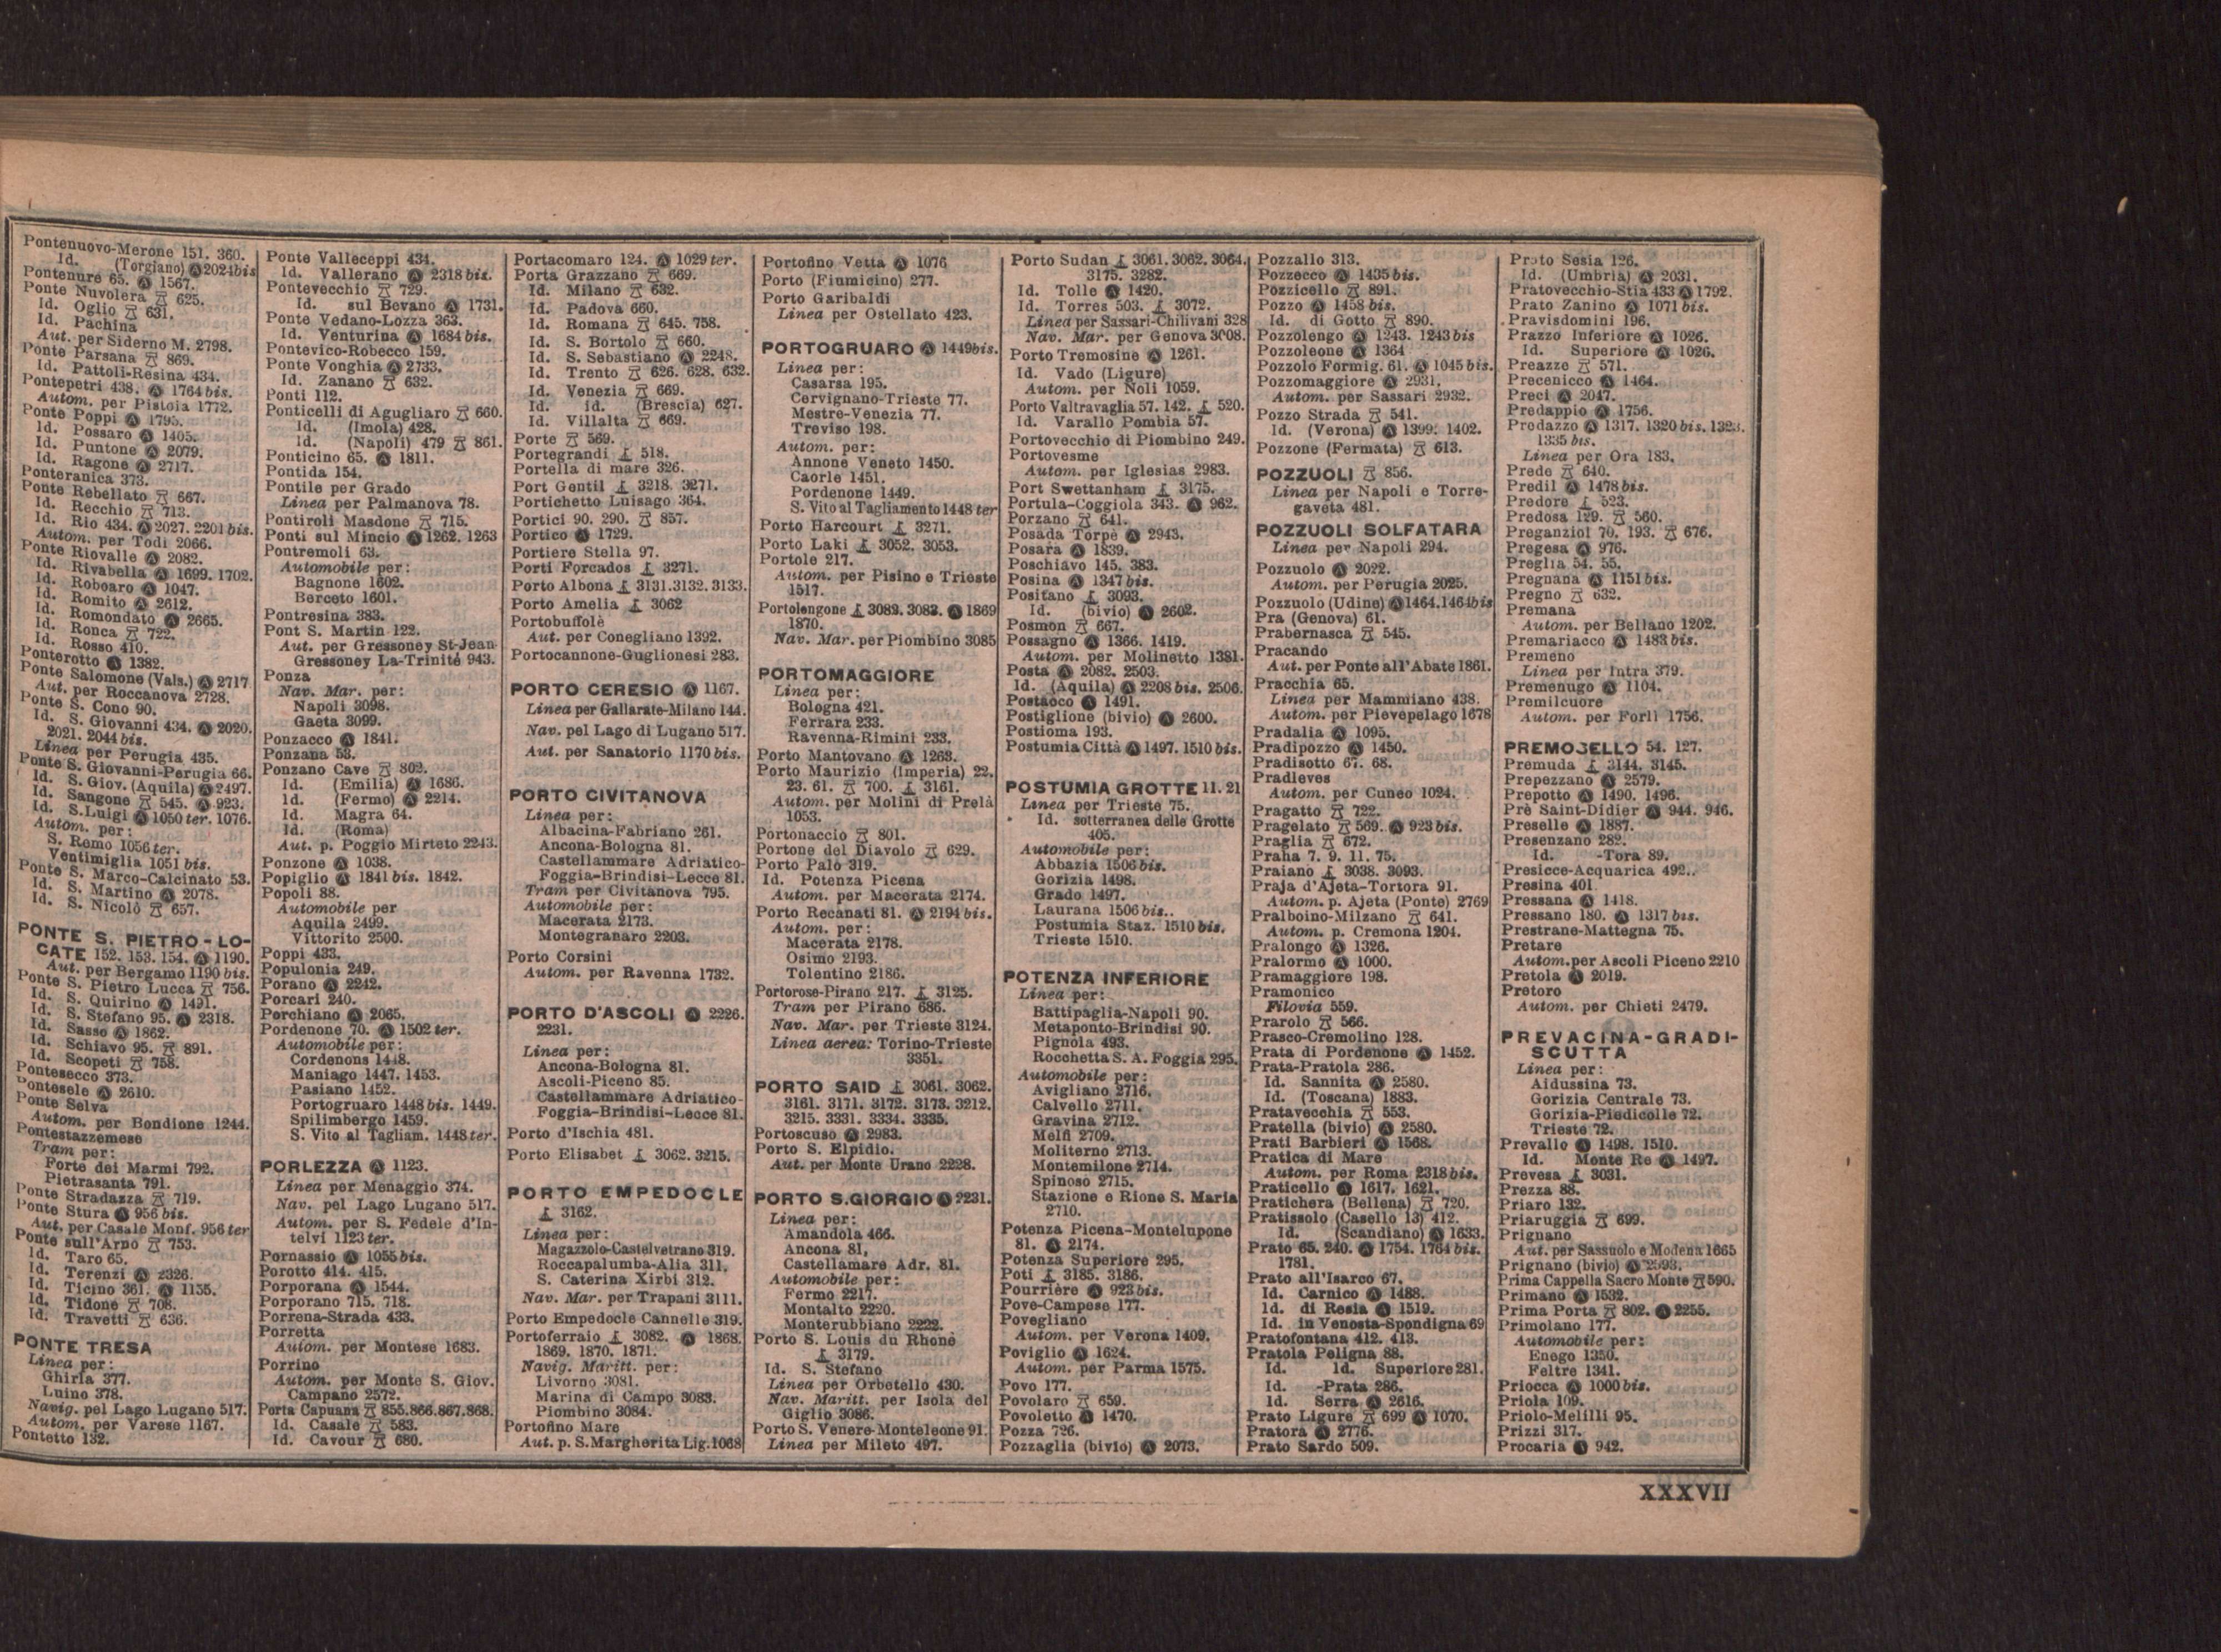 Pontenuovo-Merone 151. 360.
Id. (Torgiano) Ⓐ 2024 bis
Pontenure 65. Ⓐ 1567.
Ponte Nuvolera 625.
Id. Oglio 631.
Id. Pachina
Aut. per Siderno M. 2798.
Ponte Parsana 869.
Id. Pattoli-Resina 434.
Pontepetri 438. Ⓐ 1764 bis.
Autom. per Pistoia 1772.
Ponte Poppi Ⓐ 1795.
Id. Possaro Ⓐ 1405.
Id. Puntone Ⓐ 2079.
Id. Ragone Ⓐ 2717.
Ponteranica 373.
Ponte Rebellato 667.
Id. Recchio 713.
Id. Rio 434. Ⓐ 2027. 2201 bis.
Autom. per Todi 2066.
Ponte Riovalle Ⓐ 2082.
Id. Rivabella Ⓐ 1699. 1702.
Id. Roboaro Ⓐ 1047.
Id. Romito Ⓐ 2612.
Id. Romondato Ⓐ 2665.
Id. Ronca 722.
Id. Rosso 410.
Ponterotto Ⓐ 1382.
Ponte Salomone (Vals.) Ⓐ 2717
Aut. per Roccanova 2728.
Ponte S. Cono 90.
Id. S. Giovanni 434. Ⓐ 2020.
2021. 2044 bis.
Linea per Perugia 435.
Ponte S. Giovanni-Perugia 66.
Id. S. Giov. (Aquila) Ⓐ 2497.
Id. Sangone 545. Ⓐ 923.
Id. S. Luigi Ⓐ 1050 ter. 1076.
Autom. per:
S. Remo 1056 ter.
Ventimiglia 1051 bis.
Ponte S. Marco-Calcinato 53.
Id. S. Martino Ⓐ 2078.
Id. S. Nicolò 657.
PONTE S. PIETRO-LO-
CATE 152. 153. 154. Ⓐ 1190.
Aut. per Bergamo 1190 bis.
Ponte S. Pietro Lucca 756.
Id. S. Quirino Ⓐ 1491.
Id. S. Stefano 95. Ⓐ 2318.
Id. Sasso Ⓐ 1862.
Id. Schiavo 95. 891.
Id. Scopeti 758.
Pontesecco 373.
Pontesele Ⓐ 2610.
Ponte Selva
Autom. per Bondione 1244.
Pontestazzemese
Tram per:
Forte dei Marmi 792.
Pietrasanta 791.
Ponte Stradazza 719.
Ponte Stura Ⓐ 956 bis.
Aut. per Casale Monf. 956 ter
Ponte sull'Arno 753.
Id. Taro 65.
Id. Terenzi Ⓐ 2326.
Id. Ticino 361. Ⓐ 1155.
Id. Tidone 708.
Id. Travetti 636.
PONTE TRESA
Linea per:
Ghirla 377.
Luino 378.
Navig. pel Lago Lugano 517.
Autom. per Varese 1167.
Pontetto 132.
Ponte Valleceppi 434.
Id. Vallerano Ⓐ 2318 bis.
Pontevecchio 729.
Id. sul Bevano Ⓐ 1731.
Ponte Vedano-Lozza 363.
Id. Venturina Ⓐ 1684 bis.
Pontevico-Robecco 159.
Ponte Vonghia Ⓐ 2733.
Id. Zanano 632.
Ponti 112.
Ponticelli di Agugliaro 660.
Id. (Imola) 428.
Id. (Napoli) 479 861.
Ponticino 65. Ⓐ 1811.
Pontida 154.
Pontile per Grado
Linea per Palmanova 78.
Pontiroli Masdone 715.
Ponti sul Mincio Ⓐ 1262. 1263
Pontremoli 63.
Automobile per:
Bagnone 1602.
Berceto 1601.
Pontresina 383.
Pont S. Martin 122.
Aut. per Gressoney St-Jean
Gressoney La-Trinité 943.
Ponza
Nav. Mar. per:
Napoli 3098.
Gaeta 3099.
Ponzacco Ⓐ 1841.
Ponzana 53.
Ponzano Cave 802.
Id. (Emilia) Ⓐ 1686.
Id. (Fermo) Ⓐ 2214.
Id. Magra 64.
Id. (Roma)
Aut. p. Poggio Mirteto 2243.
Ponzone Ⓐ 1038.
Popiglio Ⓐ 1841 bis. 1842.
Popoli 88.
Automobile per
Aquila 2499.
Vittorito 2500.
Poppi 433.
Populonia 249.
Porano Ⓐ 2242.
Porcari 240.
Porchiano Ⓐ 2065.
Pordenone 70. Ⓐ 1502 ter.
Automobile per:
Cordenons 1448.
Maniago 1447. 1453.
Pasiano 1452.
Portogruaro 1448 bis. 1449.
Spilimbergo 1459.
S. Vito al Tagliam. 1448 ter.
PORLEZZA Ⓐ 1123.
Linea per Menaggio 374.
Nav. pel Lago Lugano 517.
Autom. per S. Fedele d'In-
telvi 1123 ter.
Pornassio Ⓐ 1055 bis.
Porotto 414. 415.
Porporana Ⓐ 1544.
Porporano 715. 718.
Porrena-Strada 433.
Porretta
Autom. per Montese 1683.
Porrino
Autom. per Monte S. Giov.
Campano 2572.
Porta Capuana 855.866.867.868.
Id. Casale 583.
Id. Cavour 680.
Portacomaro 124. Ⓐ 1029 ter.
Porta Grazzano 669.
Id. Milano 632.
Id. Padova 660.
Id. Romana 645. 758.
Id. S. Bortolo 660.
Id. S. Sebastiano Ⓐ 2248.
Id. Trento 626. 628. 632.
Id. Venezia 669.
Id. id. (Brescia) 627.
Id. Villalta 669.
Porte 569.
Portegrandi 518.
Portella di mare 326.
Port Gentil 3218. 3271.
Portichetto Luisago 364.
Portici 90. 290. 857.
Portico Ⓐ 1729.
Portiere Stella 97.
Porti Forcados 3271.
Porto Albona 3131.3132. 3133.
Porto Amelia 3062
Portobuffolè
Aut. per Conegliano 1392.
Portocannone-Guglionesi 283.
PORTO CERESIO Ⓐ 1167.
Linea per Gallarate-Milano 144.
Nav. pel Lago di Lugano 517.
Aut. per Sanatorio 1170 bis.
PORTO CIVITANOVA
Linea per:
Albacina-Fabriano 261.
Ancona-Bologna 81.
Castellammare Adriatico-
Foggia-Brindisi-Lecce 81.
Tram per Civitanova 795.
Automobile per:
Macerata 2173.
Montegranaro 2203.
Porto Corsini
Autom. per Ravenna 1732.
PORTO D'ASCOLI Ⓐ 2226.
2231.
Linea per:
Ancona-Bologna 81.
Ascoli-Piceno 85.
Castellammare Adriatico-
Foggia-Brindisi-Lecce 81.
Porto d'Ischia 481.
Porto Elisabet 3062. 3215.
PORTO EMPEDOCLE
3162.
Linea per:
Magazzolo-Castelvetrano 319.
Roccapalumba-Alia 311.
S. Caterina Xirbi 312.
Nav. Mar. per Trapani 3111.
Porto Empedocle Cannelle 319.
Portoferraio 3082. Ⓐ 1868.
1869. 1870. 1871.
Navig. Maritt. per:
Livorno 3081.
Marina di Campo 3083.
Piombino 3084.
Portofino Mare
Aut. p. S. Margherita Lig. 1068
Portofino Vetta Ⓐ 1076
Porto (Fiumicino) 277.
Porto Garibaldi
Linea per Ostellato 423.
PORTOGRUARO Ⓐ 1449 bis.
Linea per:
Casarsa 195.
Cervignano-Trieste 77.
Mestre-Venezia 77.
Treviso 198.
Autom. per:
Annone Veneto 1450.
Caorle 1451.
Pordenone 1449.
S. Vito al Tagliamento 1448 ter
Porto Harcourt 3271.
Porto Laki 3052. 3053.
Portole 217.
Autom. per Pisino e Trieste
1517.
Portolengone 3082. 3083. Ⓐ 1869
1870.
Nav. Mar. per Piombino 3085
PORTOMAGGIORE
Linea per:
Bologna 421.
Ferrara 233.
Ravenna-Rimini 233.
Porto Mantovano Ⓐ 1263.
Porto Maurizio (Imperia) 22.
23. 61. 700. 3161.
Autom. per Molini di Prelà
1053.
Portonaccio 801.
Portone del Diavolo 629.
Porto Palo 319.
Id. Potenza Picena
Autom. per Macerata 2174.
Porto Recanati 81. Ⓐ 2194 bis.
Autom. per:
Macerata 2178.
Osimo 2193.
Tolentino 2186.
Portorose-Pirano 217. 3125.
Tram per Pirano 686.
Nav. Mar. per Trieste 3124.
Linea aerea: Torino-Trieste
3351.
PORTO SAID 3061. 3062.
3161. 3171. 3172. 3173. 3212.
3215. 3331. 3334. 3335.
Portoscuso Ⓐ 2983.
Porto S. Elpidio.
Aut. per Monte Urano 2228.
PORTO S. GIORGIO Ⓐ 2231.
Linea per:
Amandola 466.
Ancona 81,
Castellamare Adr. 81.
Automobile per:
Fermo 2217.
Montalto 2220.
Monterubbiano 2222.
Porto S. Louis du Rhonè
3179.
Id. S. Stefano
Linea per Orbetello 430.
Nav. Maritt. per Isola del
Giglio 3086.
Porto S. Venere-Monteleone 91.
Linea per Mileto 497.
Porto Sudan 3061. 3062. 3064.
3175. 3282.
Id. Tolle Ⓐ 1420.
Id. Torres 503. 3072.
Linea per Sassari-Chilivani 328
Nav. Mar. per Genova 3008.
Porto Tremosine Ⓐ 1261.
Id. Vado (Ligure)
Autom. per Noli 1059.
Porto Valtravaglia 57. 142. 520.
Id. Varallo Pombia 57.
Portovecchio di Piombino 249.
Portovesme
Autom. per Iglesias 2983.
Port Swettanham 3175.
Portula-Coggiola 343. Ⓐ 962.
Porzano 641.
Posada Torpè Ⓐ 2943.
Posara Ⓐ 1839.
Poschiavo 145. 383.
Posina Ⓐ 1347 bis.
Positano 3093.
Id. (bivio) Ⓐ 2602.
Posmon 667.
Possagno Ⓐ 1366. 1419.
Autom. per Molinetto 1381.
Posta Ⓐ 2082. 2503.
Id. (Aquila) Ⓐ 2208 bis. 2506.
Postaoco Ⓐ 1491.
Postiglione (bivio) Ⓐ 2600.
Postioma 193.
Postumia Città Ⓐ 1497. 1510 bis.
POSTUMIA GROTTE 11. 21
Linea per Trieste 75.
Id. sotterranea delle Grotte
405.
Automobile per:
Abbazia 1506 bis.
Gorizia 1498.
Grado 1497.
Laurana 1506 bis..
Postumia Staz. 1510 bis.
Trieste 1510.
POTENZA INFERIORE
Linea per:
Battipaglia-Napoli 90.
Metaponto-Brindisi 90.
Pignola 493.
Rocchetta S. A. Foggia 295.
Automobile per:
Avigliano 2716.
Calvello 2711.
Gravina 2712.
Melfi 2709.
Moliterno 2713.
Montemilone 2714.
Spinoso 2715.
Stazione e Rione S. Maria
2710.
Potenza Picena-Montelupone
81. Ⓐ 2174.
Potenza Superiore 295.
Poti 3185. 3186.
Pourrière Ⓐ 923 bis.
Pove-Campese 177.
Povegliano
Autom. per Verona 1409.
Poviglio Ⓐ 1624.
Autom. per Parma 1575.
Povo 177.
Povolaro 659.
Povoletto Ⓐ 1470.
Pozza 726.
Pozzaglia (bivio) Ⓐ 2073.
Pozzallo 313.
Pozzecco Ⓐ 1435 bis.
Pozzicello 891.
Pozzo Ⓐ 1458 bis.
Id. di Gotto 890.
Pozzolengo Ⓐ 1243. 1243 bis
Pozzoleone Ⓐ 1364
Pozzolo Formig. 61. Ⓐ 1045 bis.
Pozzomaggiore Ⓐ 2931.
Autom. per Sassari 2932.
Pozzo Strada 541.
Id. (Verona) Ⓐ 1399. 1402.
Pozzone (Fermata) 613.
POZZUOLI 856.
Linea per Napoli e Torre-
gaveta 481.
POZZUOLI SOLFATARA
Linea per Napoli 294.
Pozzuolo Ⓐ 2022.
Autom. per Perugia 2025.
Pozzuolo (Udine) Ⓐ 1464. 1464 bis
Pra (Genova) 61.
Prabernasca 545.
Pracando
Aut. per Ponte all'Abate 1861.
Pracchia 65.
Linea per Mammiano 438.
Autom. per Pievepelago 1678
Pradalia Ⓐ 1095.
Pradipozzo Ⓐ 1450.
Pradisotto 67. 68.
Pradleves
Autom. per Cuneo 1024.
Pragatto 722.
Pragelato 569. Ⓐ 923 bis.
Praglia 672.
Praha 7. 9. 11. 75.
Praiano 3038. 3093.
Praja d'Ajeta-Tortora 91.
Autom. p. Ajeta (Ponte) 2769
Pralboino-Milzano 641.
Autom. p. Cremona 1204.
Pralongo Ⓐ 1326.
Pralormo Ⓐ 1000.
Pramaggiore 198.
Pramonico
Filovia 559.
Prarolo 566.
Prasco-Cremolino 128.
Prata di Pordenone Ⓐ 1452.
Prata-Pratola 286.
Id. Sannita Ⓐ 2580.
Id. (Toscana) 1883.
Pratavecchia 553.
Pratella (bivio) Ⓐ 2580.
Prati Barbieri Ⓐ 1568.
Pratica di Mare
Autom. per Roma 2318 bis.
Praticello Ⓐ 1617. 1621.
Pratichera (Bellena) 720.
Pratissolo (Casello 13) 412.
Id. (Scandiano) Ⓐ 1633.
Prato 65. 240. Ⓐ 1754. 1764 bis.
1781.
Prato all'Isarco 67.
Id. Carnico Ⓐ 1488.
Id. di Resia Ⓐ 1519.
Id. in Venosta-Spondigna 69
Pratofontana 412. 413.
Pratola Peligna 88.
Id. Id. Superiore 281.
Id. -Prata 286.
Id. Serra Ⓐ 2616.
Prato Ligure 699 Ⓐ 1070.
Pratora Ⓐ 2776.
Prato Sardo 509.
Prato Sesia 126.
Id. (Umbria) Ⓐ 2031.
Pratovecchio-Stia 433 Ⓐ 1792.
Prato Zanino Ⓐ 1071 bis.
Pravisdomini 196.
Prazzo Inferiore Ⓐ 1026.
Id. Superiore Ⓐ 1026.
Preazze 571.
Precenicco Ⓐ 1464.
Preci Ⓐ 2047.
Predappio Ⓐ 1756.
Predazzo Ⓐ 1317. 1320 bis. 1323.
1335 bis.
Linea per Ora 183.
Prede 640.
Predil Ⓐ 1478 bis.
Predore 523.
Predosa 129. 560.
Preganziol 70. 193. 676.
Pregesa Ⓐ 976.
Preglia 54. 55.
Pregnana Ⓐ 1151 bis.
Pregno 632.
Premana
Autom. per Bellano 1202.
Premariacco Ⓐ 1483 bis.
Premeno
Linea per Intra 379.
Premenugo Ⓐ 1104.
Premilcuore
Autom. per Forlì 1756.
PREMOSELLO 54. 127.
Premuda 3144. 3145.
Prepezzano Ⓐ 2579.
Prepotto Ⓐ 1490. 1496.
Prè Saint-Didier Ⓐ 944. 946.
Preselle Ⓐ 1887.
Presenzano 282.
Id. -Tora 89.
Presicce-Acquarica 492..
Presina 401.
Pressana Ⓐ 1418.
Pressano 180. Ⓐ 1317 bis.
Prestrane-Mattegna 75.
Pretare
Autom. per Ascoli Piceno 2210
Pretola Ⓐ 2019.
Pretoro
Autom. per Chieti 2479.
PREVACINA-GRADI-
SCUTTA
Linea per:
Aidussina 73.
Gorizia Centrale 73.
Gorizia-Piedicolle 72.
Trieste 72.
Prevallo Ⓐ 1498. 1510.
Id. Monte Re Ⓐ 1497.
Prevesa 3031.
Prezza 88.
Priaro 132.
Priaruggia 699.
Prignano
Aut. per Sassuolo e Modena 1665
Prignano (bivio) Ⓐ 2593.
Prima Cappella Sacro Monte 590.
Primano Ⓐ 1532.
Prima Porta 802. Ⓐ 2255.
Primolano 177.
Automobile per:
Enego 1350.
Feltre 1341.
Priocca Ⓐ 1000 bis.
Priola 109.
Priolo-Melilli 95.
Prizzi 317.
Procaria Ⓐ 942.
XXXVII